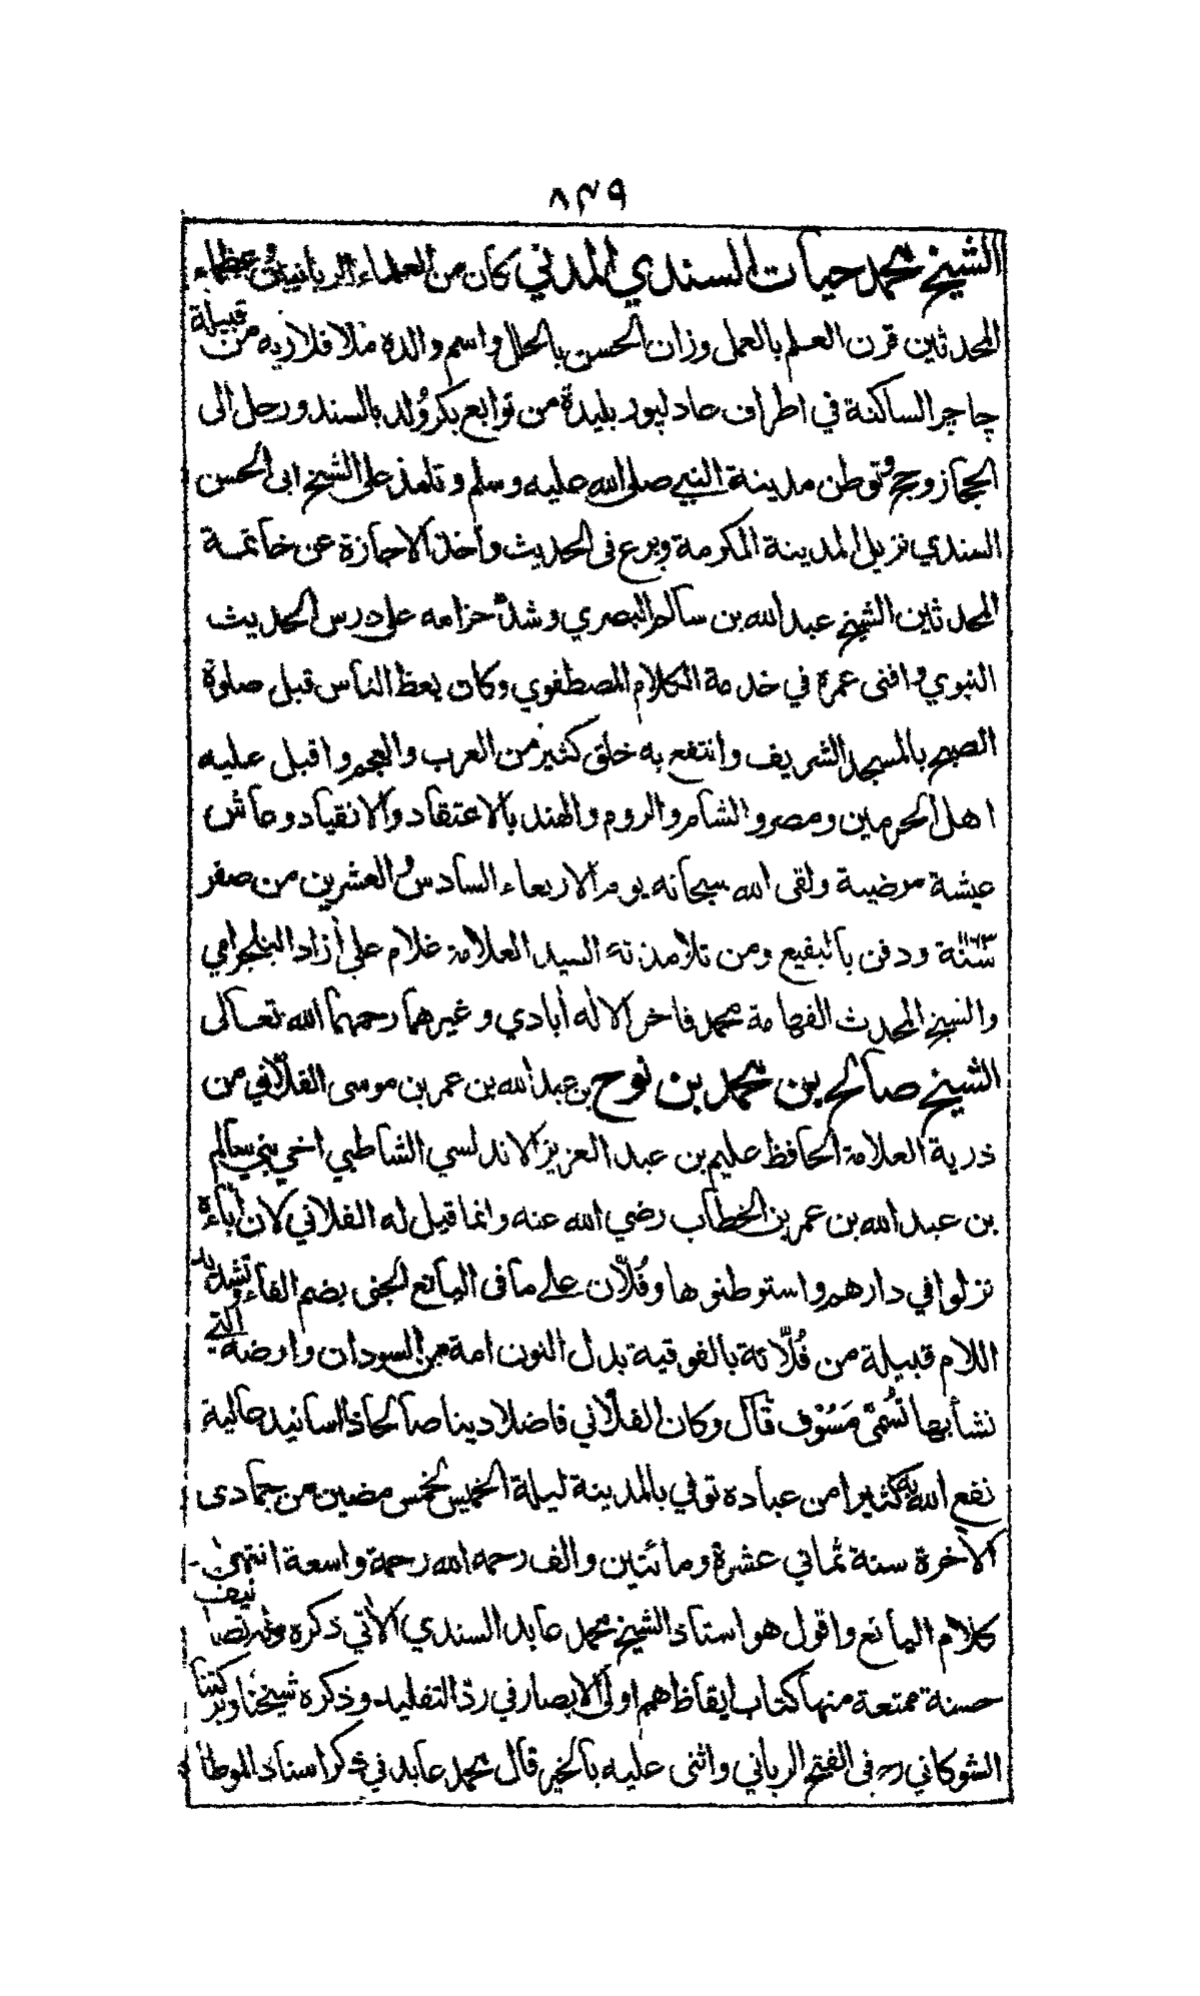 ٨٤٩
الشيخ محمد حيات السندي المدني كان من العلماء الربانيين وعظماء
المحدثين قرن العلم بالعمل وزان الحسن بالحلل واسم والده ملا فلاريه من قبيلة
چاچر الساكنة في اطراف عادلپور بليدة من توابع بكر وُلد بالسند ورحل الى
الحجاز وحج وتوطن مدينة النبي صلى الله عليه وسلم وتلمذ على الشيخ ابى الحسن
السندي نزيل المدينة المكرمة وبرع فى الحديث وأخذ الاجازة عن خاتمة
المحدثين الشيخ عبد الله بن سالم البصري وشدّ حزامه على درس الحديث
النبوي وافنى عمره في خدمة الكلام المصطفوي وكان يعظ الناس قبل صلوة
الصبح بالمسجد الشريف وانتفع به خلق كثير من العرب والعجم واقبل عليه
اهل الحرمين ومصر والشام والروم والهند بالاعتقاد والانقياد وعاش
عيشة مرضية ولقى الله سبحانه يوم الاربعاء السادس والعشرين من صفر
سنة ١١٦٣ ودفن بالبقيع ومن تلامذته السيد العلامة غلام علي أزاد البلجرامي
والشيخ المحدث الفهامة محمد فاخر الاله أبادي وغيرهما رحمهما الله تعالى
الشيخ صالح بن محمد بن نوح بن عبد الله بن عمر بن موسى الفلّاني من
ذرية العلامة الحافظ عليم بن عبد العزيز الاندلسي الشاطبي اخي بني سالم
بن عبد الله بن عمر بن الخطاب رضي الله عنه وانما قيل له الفلاني لان أباءه
نزلوا في دارهم واستوطنوها وفُلّان على ما فى اليانع الجنى بضم الفاء وتشديد
اللام قبيلة من فُلّاتة بالفوقية بدل النون امة من السودان وارضه التي
نشأ بها تُسمّى مَسُوْف قال وكان الفلاني فاضلا دينا صالحا ذا اسانيد عالية
نفع الله به كثيرا من عباده توفي بالمدينة ليلة الخميس لخمس مضين من جمادى
الأخرة سنة ثماني عشرة ومائتين والف رحمه الله رحمة واسعة انتهى
كلام اليانع واقول هو استاذ الشيخ محمد عابد السندي الأتي ذكره وله تصانيف
حسنة ممتعة منها كتاب ايقاظ همم اولى الابصار في ردّ التقليد وذكره شيخنا وبركتنا
الشوكاني رح فى الفتح الرباني واثنى عليه بالخير قال محمد عابد في ذكر اسناد الموطأ